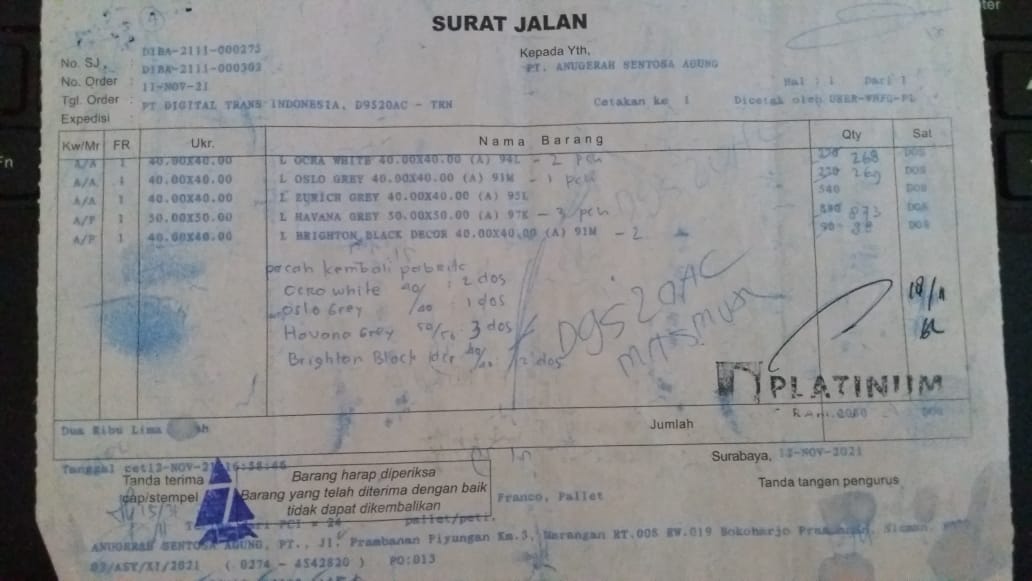 SURAT JALAN
No. SJ : DIBA-2111-000273
No. Order : DIBA-2111-000303
Tgl. Order : 11-NOV-21
Expedisi : PT DIGITAL TRANS INDONESIA, D9520AC - TRN
Kepada Yth,
PT. ANUGERAH SENTOSA AGUNG
Hal : 1 Dari 1
Cetakan ke 1 Dicetak oleh USER-WHFG-PL
Kw/Mr FR Ukr. Nama Barang Qty Sat
A/A 1 40.00X40.00 L OCRA WHITE 40.00X40.00 (A) 94L - 2 pch 268 DOS
A/A 1 40.00X40.00 L OSLO GREY 40.00X40.00 (A) 91M - 1 pch 269 DOS
A/A 1 40.00X40.00 L ZURICH GREY 40.00X40.00 (A) 95L 540 DOS
A/P 1 50.00X50.00 L HAVANA GREY 50.00X50.00 (A) 97K - 3 pch 873 DOS
A/P 1 40.00X40.00 L BRIGHTON BLACK DECOR 40.00X40.00 (A) 91M - 2 90 88 DOS
pecah kembali pabrik
Ocro white 40/40 : 2 dos
Oslo Grey /40 : 1 dos
Havana Grey 50/50 3 dos
Brighton Black dcr 40/40 2 dos
D9520AC
18/11
PLATINUM
Dua Ribu Lima
Jumlah
DOS
Tanggal cet12-NOV-21 16:38:46
Surabaya, 13-NOV-2021
Tanda terima
cap/stempel
Barang harap diperiksa
Barang yang telah diterima dengan baik
tidak dapat dikembalikan
Tanda tangan pengurus
Franco, Pallet
PCI = 24 pallet/peti.
ANUGERAH SENTOSA AGUNG, PT., Jl. Prambanan Piyungan Km.3, Marangan RT.005 RW.019 Bokoharjo
03/AST/XI/2021 ( 0274 - 4542820 ) PO:013